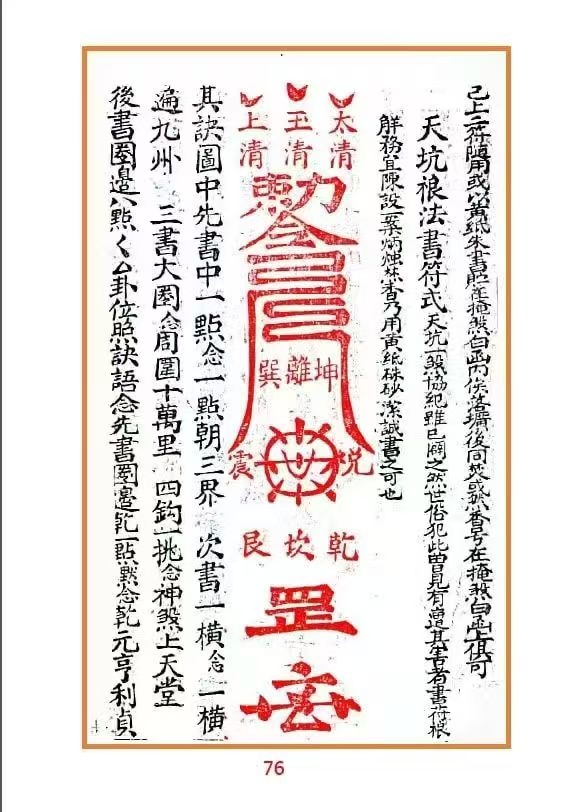 己上二符隨用或以黃紙朱書貼在掩煞白函內俟落壙後同焚或然香号在掩煞白函上俱可
天坑禳法書符式
天坑一煞協紀雖已闢之然世俗犯此曾見有遭其害者書符禳
解務宜陳設一桌炳燭焚香乃用黃紙硃砂潔誠書之可也
太清
玉清
上清
敕令
坤
離
巽
兌
震
乾
坎
艮
罡
其訣圖中先書中一點念一點朝三界 次書一橫念一橫
遍九州 三書大圈念周圍十萬里 四鈎一挑念神煞上天堂
後書圈邊八點〱 厶卦位照訣語念先書圈邊乾一點默念乾元亨利貞
76